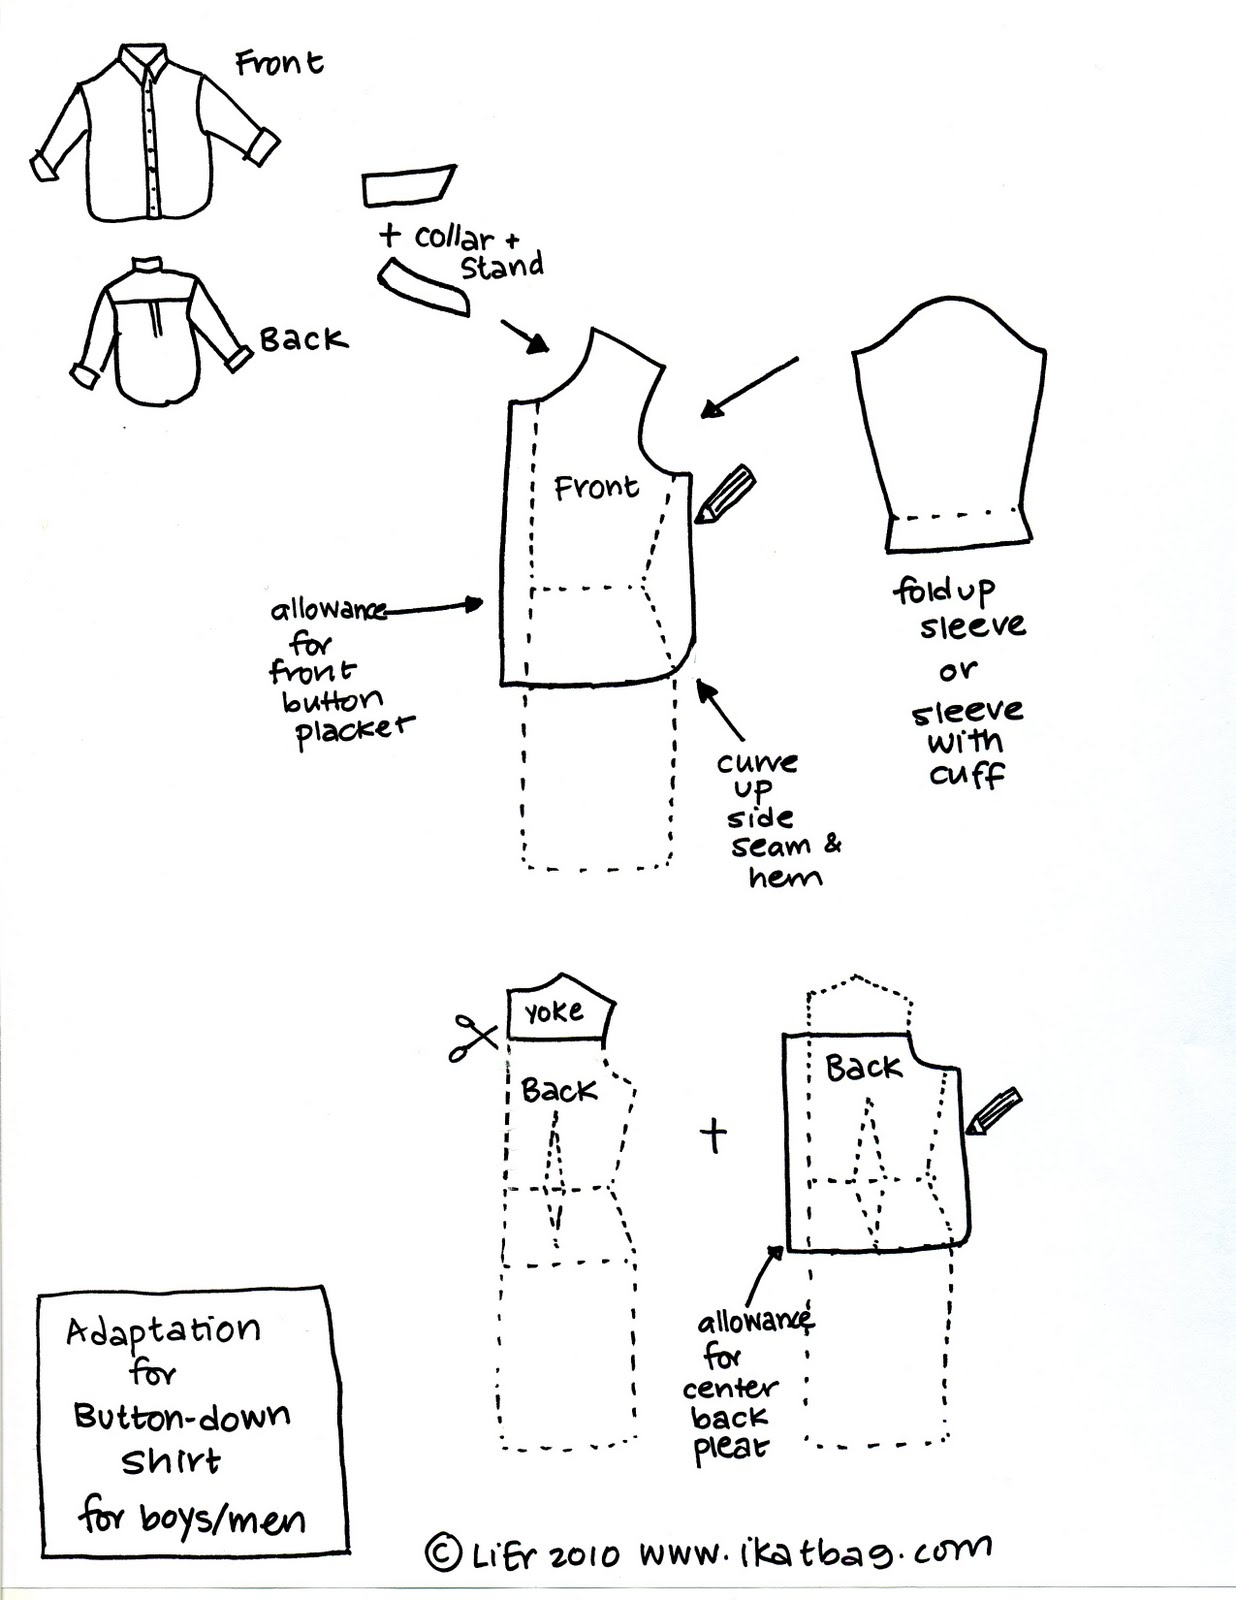 Front
+ collar +
stand
Back
Front
allowance
for
front
button
placket
fold up
sleeve
or
sleeve
with
cuff
curve
up
side
seam &
hem
yoke
Back
+
Back
allowance
for
center
back
pleat
Adaptation
for
Button-down
shirt
for boys/men
© LiEr 2010 www.ikatbag.com